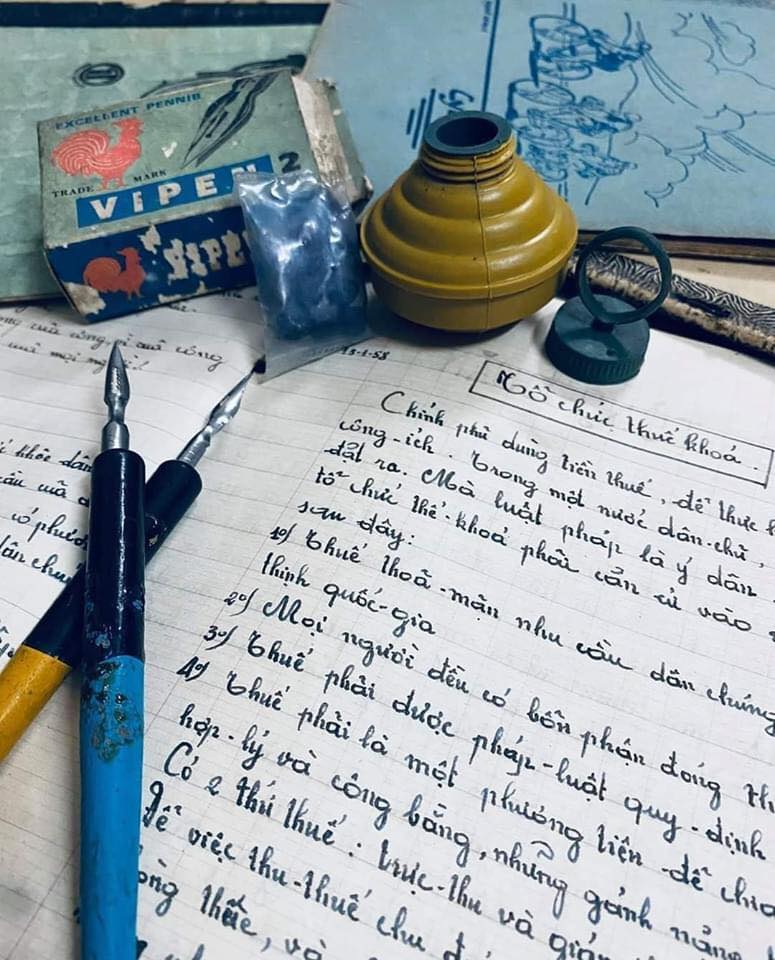 EXCELLENT PENNIB
TRADE MARK
ViPEN 2
ViPEN
công vì mỗi công
mà mọi người!
khỏe dân
13-1-58
Tổ chức thuế khoá.
Chính phủ dùng tiền thuế, để thực
công-ích. Trong một nước dân-chủ,
đặt ra. Mà luật pháp là ý dân
tổ chức thế-khoá phải căn cứ vào
sau đây:
1o/ Thuế thoả-mãn nhu cầu dân chúng
thịnh quốc-gia
2o/ Mọi người đều có bổn phận đóng th
3o/ Thuế phải được pháp-luật quy-định
4o/ Thuế phải là một phương tiện để chia
hợp-lý và công bằng, những gánh nặng
Có 2 thứ thuế: trực-thu và gián
Để việc thu-thuế chu đ
thức, và